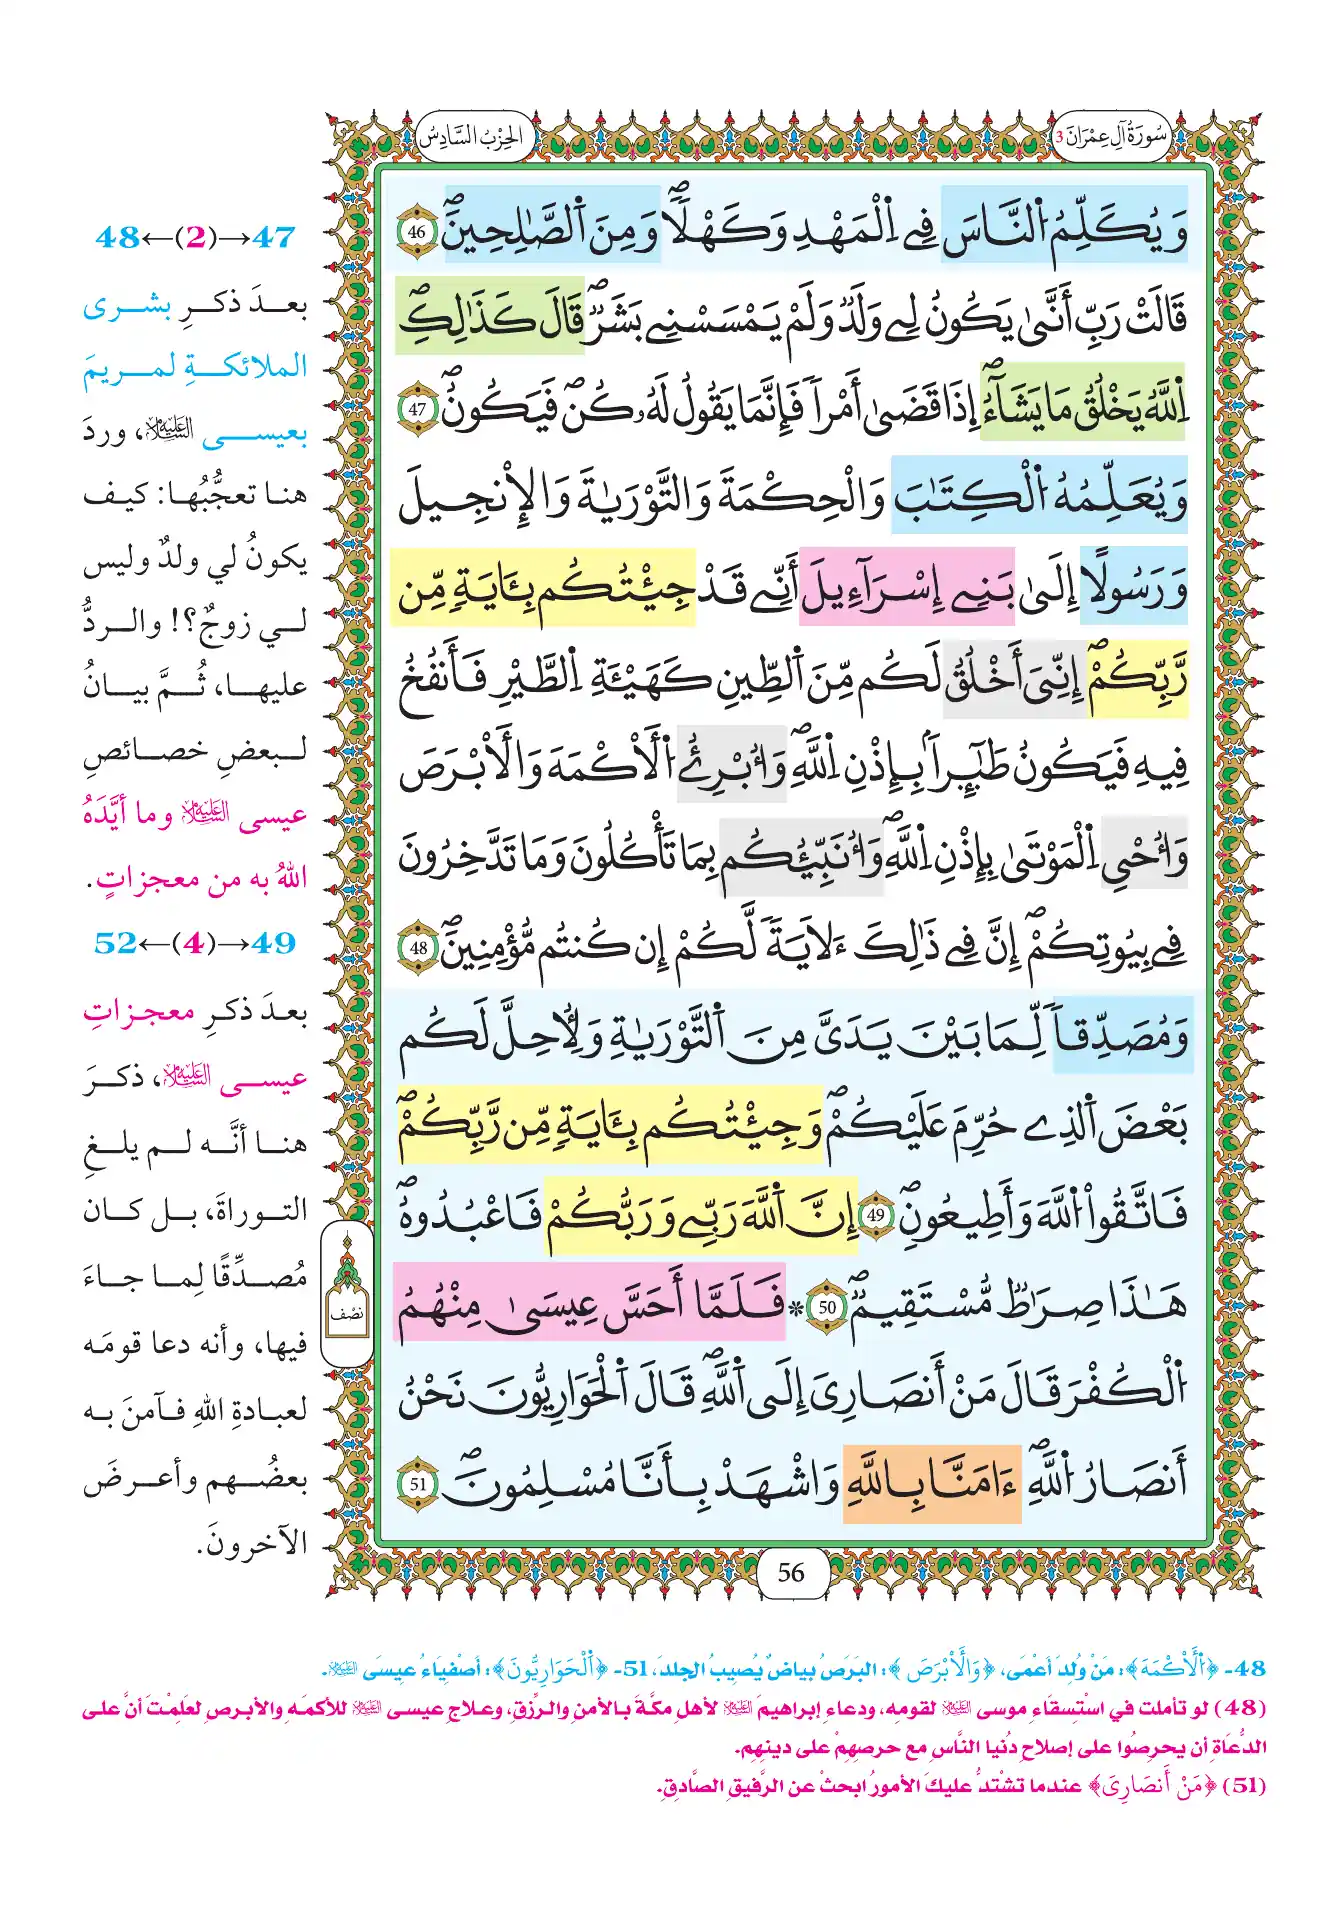 سُورَةُ آلِ عِمْرَانَ 3
الحِزْبُ السَّادِسُ
وَيُكَلِّمُ اُلنَّاسَ فِے اِلْمَهْدِ وَكَهْلاٗ وَمِنَ اَلصَّٰلِحِينَۖ 46
قَالَتْ رَبِّ أَنَّىٰ يَكُونُ لِے وَلَدٞ وَلَمْ يَمْسَسْنِے بَشَرٞۖ قَالَ كَذَٰلِكِۖ
اِللَّهُ يَخْلُقُ مَا يَشَآءُۖ إِذَا قَضَىٰٓ أَمْراٗ فَإِنَّمَا يَقُولُ لَهُۥ كُنۖ فَيَكُونُۖ 47
وَيُعَلِّمُهُ اُلْكِتَٰبَ وَالْحِكْمَةَ وَالتَّوْرَيٰةَ وَالْإِنجِيلَ
وَرَسُولًا إِلَىٰ بَنِےٓ إِسْرَآءِيلَ أَنِّے قَدْ جِئْتُكُم بِـَٔايَةٖ مِّن
رَّبِّكُمْۖ إِنِّيَ أَخْلُقُ لَكُم مِّنَ اَلطِّينِ كَهَيْـَٔةِ اِلطَّيْرِ فَأَنفُخُ
فِيهِ فَيَكُونُ طَٰٓئِراَۢ بِإِذْنِ اِللَّهِۖ وَأُبْرِئُ اُلْأَكْمَهَ وَالْأَبْرَصَ
وَأُحْيِ اِلْمَوْتَىٰ بِإِذْنِ اِللَّهِۖ وَأُنَبِّئُكُم بِمَا تَأْكُلُونَ وَمَا تَدَّخِرُونَ
فِے بِيُوتِكُمْۖ إِنَّ فِے ذَٰلِكَ ءَلَايَةٗ لَّكُمْ إِن كُنتُم مُّؤْمِنِينَۖ 48
وَمُصَدِّقاٗ لِّمَا بَيْنَ يَدَيَّ مِنَ اَلتَّوْرَيٰةِ وَلِأُحِلَّ لَكُم
بَعْضَ اَلذِے حُرِّمَ عَلَيْكُمْۖ وَجِئْتُكُم بِـَٔايَةٖ مِّن رَّبِّكُمْۖ
فَاتَّقُواْ اُللَّهَ وَأَطِيعُونِۖ 49 إِنَّ اَللَّهَ رَبِّے وَرَبُّكُمْ فَاعْبُدُوهُۖ
هَٰذَا صِرَٰطٞ مُّسْتَقِيمٞۖ 50 ۞ فَلَمَّآ أَحَسَّ عِيسَىٰ مِنْهُمُ
اُلْكُفْرَ قَالَ مَنْ أَنصَارِيَ إِلَى اَللَّهِۖ قَالَ اَلْحَوَارِيُّونَ نَحْنُ
أَنصَارُ اُللَّهِۖ ءَامَنَّا بِاللَّهِ وَاشْهَدْ بِأَنَّا مُسْلِمُونَۖ 51
نصف
56
47→(2)←48
بعدَ ذكرِ بشرى
الملائكةِ لمريمَ
بعيسى عليه السلام، وردَ
هنا تعجُّبُها: كيف
يكونُ لي ولدٌ وليس
لي زوجٌ؟! والردُّ
عليها، ثُمَّ بيانُ
لبعضِ خصائصِ
عيسى عليه السلام وما أيَّدَهُ
اللهُ به من معجزاتٍ.
49→(4)←52
بعدَ ذكرِ معجزاتِ
عيسى عليه السلام، ذكرَ
هنا أنَّه لم يلغِ
التوراةَ، بل كان
مُصدِّقًا لِما جاءَ
فيها، وأنه دعا قومَه
لعبادةِ اللهِ فآمنَ به
بعضُهم وأعرضَ
الآخرونَ.
48- ﴿اُلْأَكْمَهَ﴾: مَنْ وُلِدَ أعْمَى، ﴿وَالْأَبْرَصَ﴾: البَرَصُ بياضٌ يُصِيبُ الجِلدَ، 51- ﴿اَلْحَوَارِيُّونَ﴾: أصْفِيَاءُ عِيسَى عليه السلام.
(48) لو تأملت في اسْتِسقَاءِ موسى عليه السلام لقومِه، ودعاءِ إبراهيمَ عليه السلام لأهلِ مكَّةَ بالأمنِ والرِّزقِ، وعلاجِ عيسى عليه السلام للأكمَهِ والأبرصِ لعَلِمْتَ أنَّ على
الدُّعَاةِ أن يحرِصُوا على إصلاحِ دُنيا النَّاسِ مع حرصِهِمْ على دينِهِم.
(51) ﴿مَنْ أَنصَارِيَ﴾ عندما تشْتدُّ عليكَ الأمورُ ابحثْ عن الرَّفيقِ الصَّادقِ.